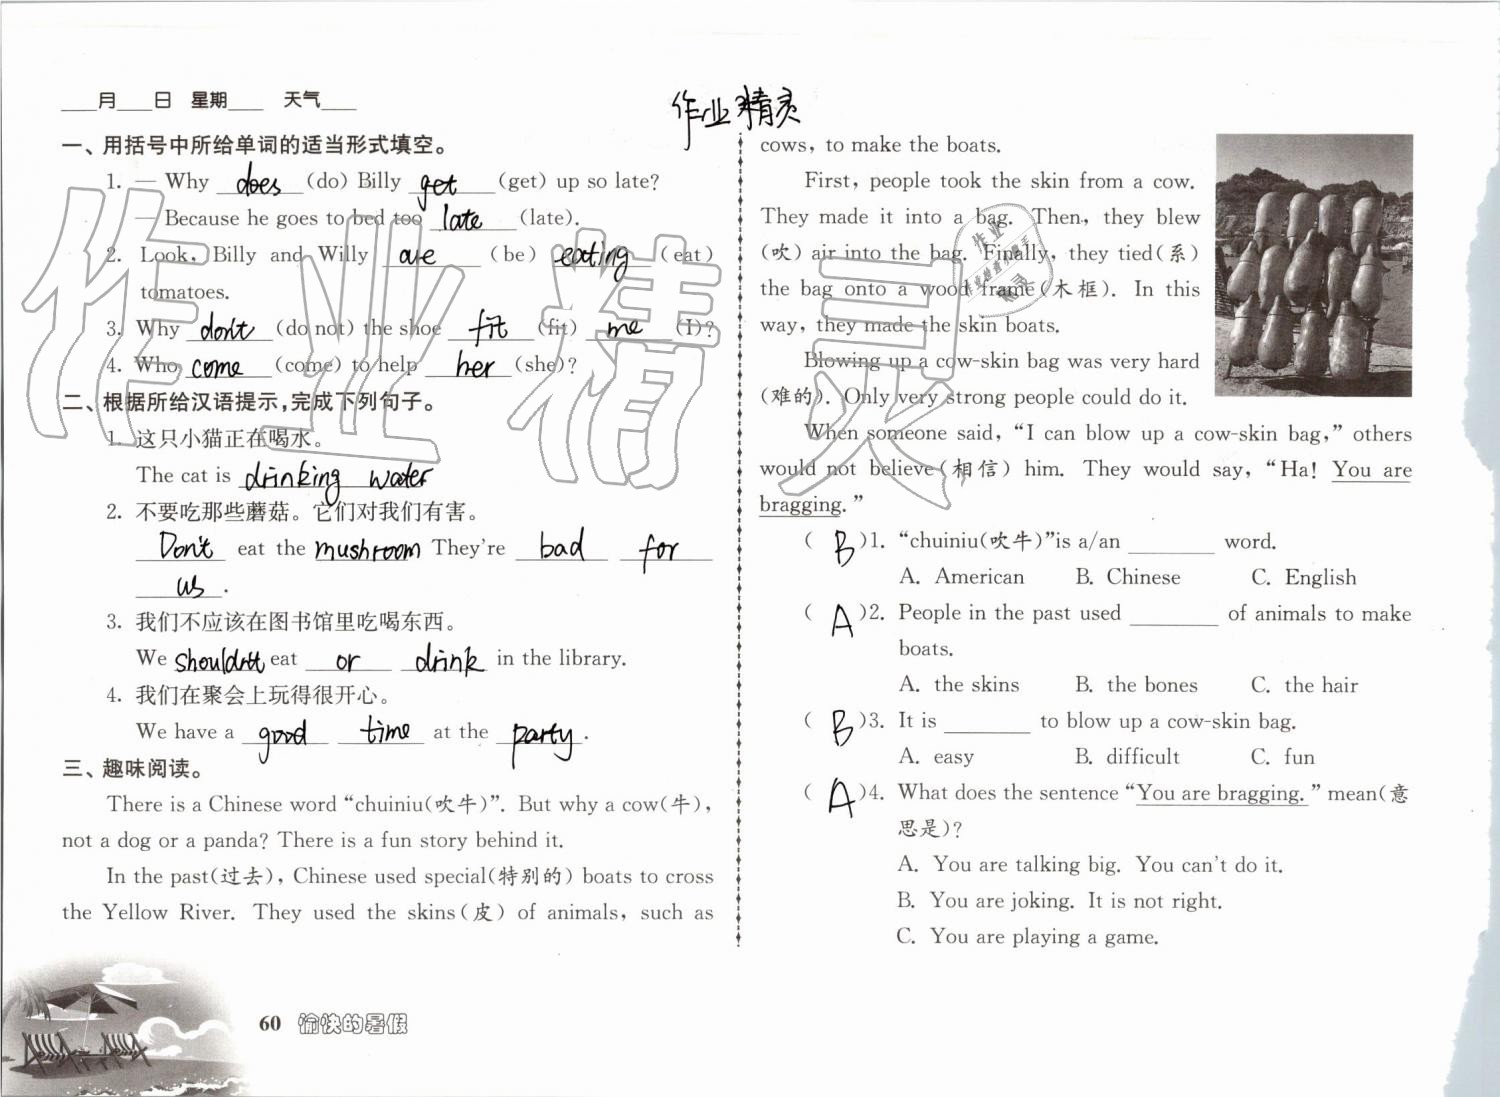 ____月____日 星期____ 天气____
作业精灵
一、用括号中所给单词的适当形式填空。
1. — Why does (do) Billy get (get) up so late?
— Because he goes to bed too late (late).
2. Look, Billy and Willy are (be) eating (eat)
tomatoes.
3. Why don't (do not) the shoe fit (fit) me (I)?
4. Who come (come) to help her (she)?
二、根据所给汉语提示,完成下列句子。
1. 这只小猫正在喝水。
The cat is drinking water
2. 不要吃那些蘑菇。它们对我们有害。
Don't eat the mushroom They're bad for
us.
3. 我们不应该在图书馆里吃喝东西。
We shouldn't eat or drink in the library.
4. 我们在聚会上玩得很开心。
We have a good time at the party.
三、趣味阅读。
There is a Chinese word “chuiniu(吹牛)”. But why a cow(牛),
not a dog or a panda? There is a fun story behind it.
In the past(过去), Chinese used special(特别的) boats to cross
the Yellow River. They used the skins(皮) of animals, such as
60 愉快的暑假
cows, to make the boats.
First, people took the skin from a cow.
They made it into a bag. Then, they blew
(吹) air into the bag. Finally, they tied(系)
the bag onto a wood frame(木框). In this
way, they made the skin boats.
Blowing up a cow-skin bag was very hard
(难的). Only very strong people could do it.
When someone said, “I can blow up a cow-skin bag,” others
would not believe(相信) him. They would say, “Ha! You are
bragging.”
( B )1. “chuiniu(吹牛)”is a/an ________ word.
A. American B. Chinese C. English
( A )2. People in the past used ________ of animals to make
boats.
A. the skins B. the bones C. the hair
( B )3. It is ________ to blow up a cow-skin bag.
A. easy B. difficult C. fun
( A )4. What does the sentence “You are bragging.” mean(意
思是)?
A. You are talking big. You can't do it.
B. You are joking. It is not right.
C. You are playing a game.
作业精灵